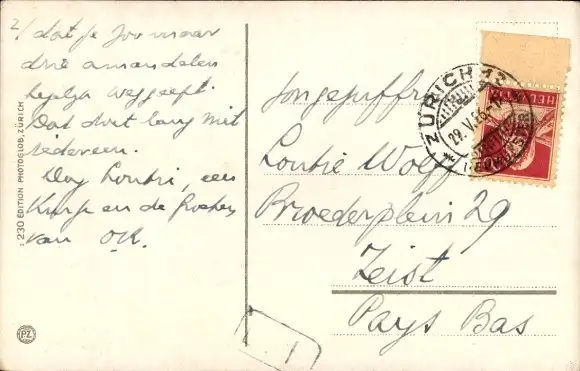 2/ dat je zoo maar
drie amandelen
weggeeft.
Dat doet lang niet
iedereen.
Dag Loutie, een
Kusje en de
van OK.
Jongejuffr.
Loutie Wolff
Broederplein 29
Zeist
Pays Bas
ZÜRICH
29.V.
HELVETIA
230 EDITION PHOTOGLOB, ZÜRICH
PZ
1